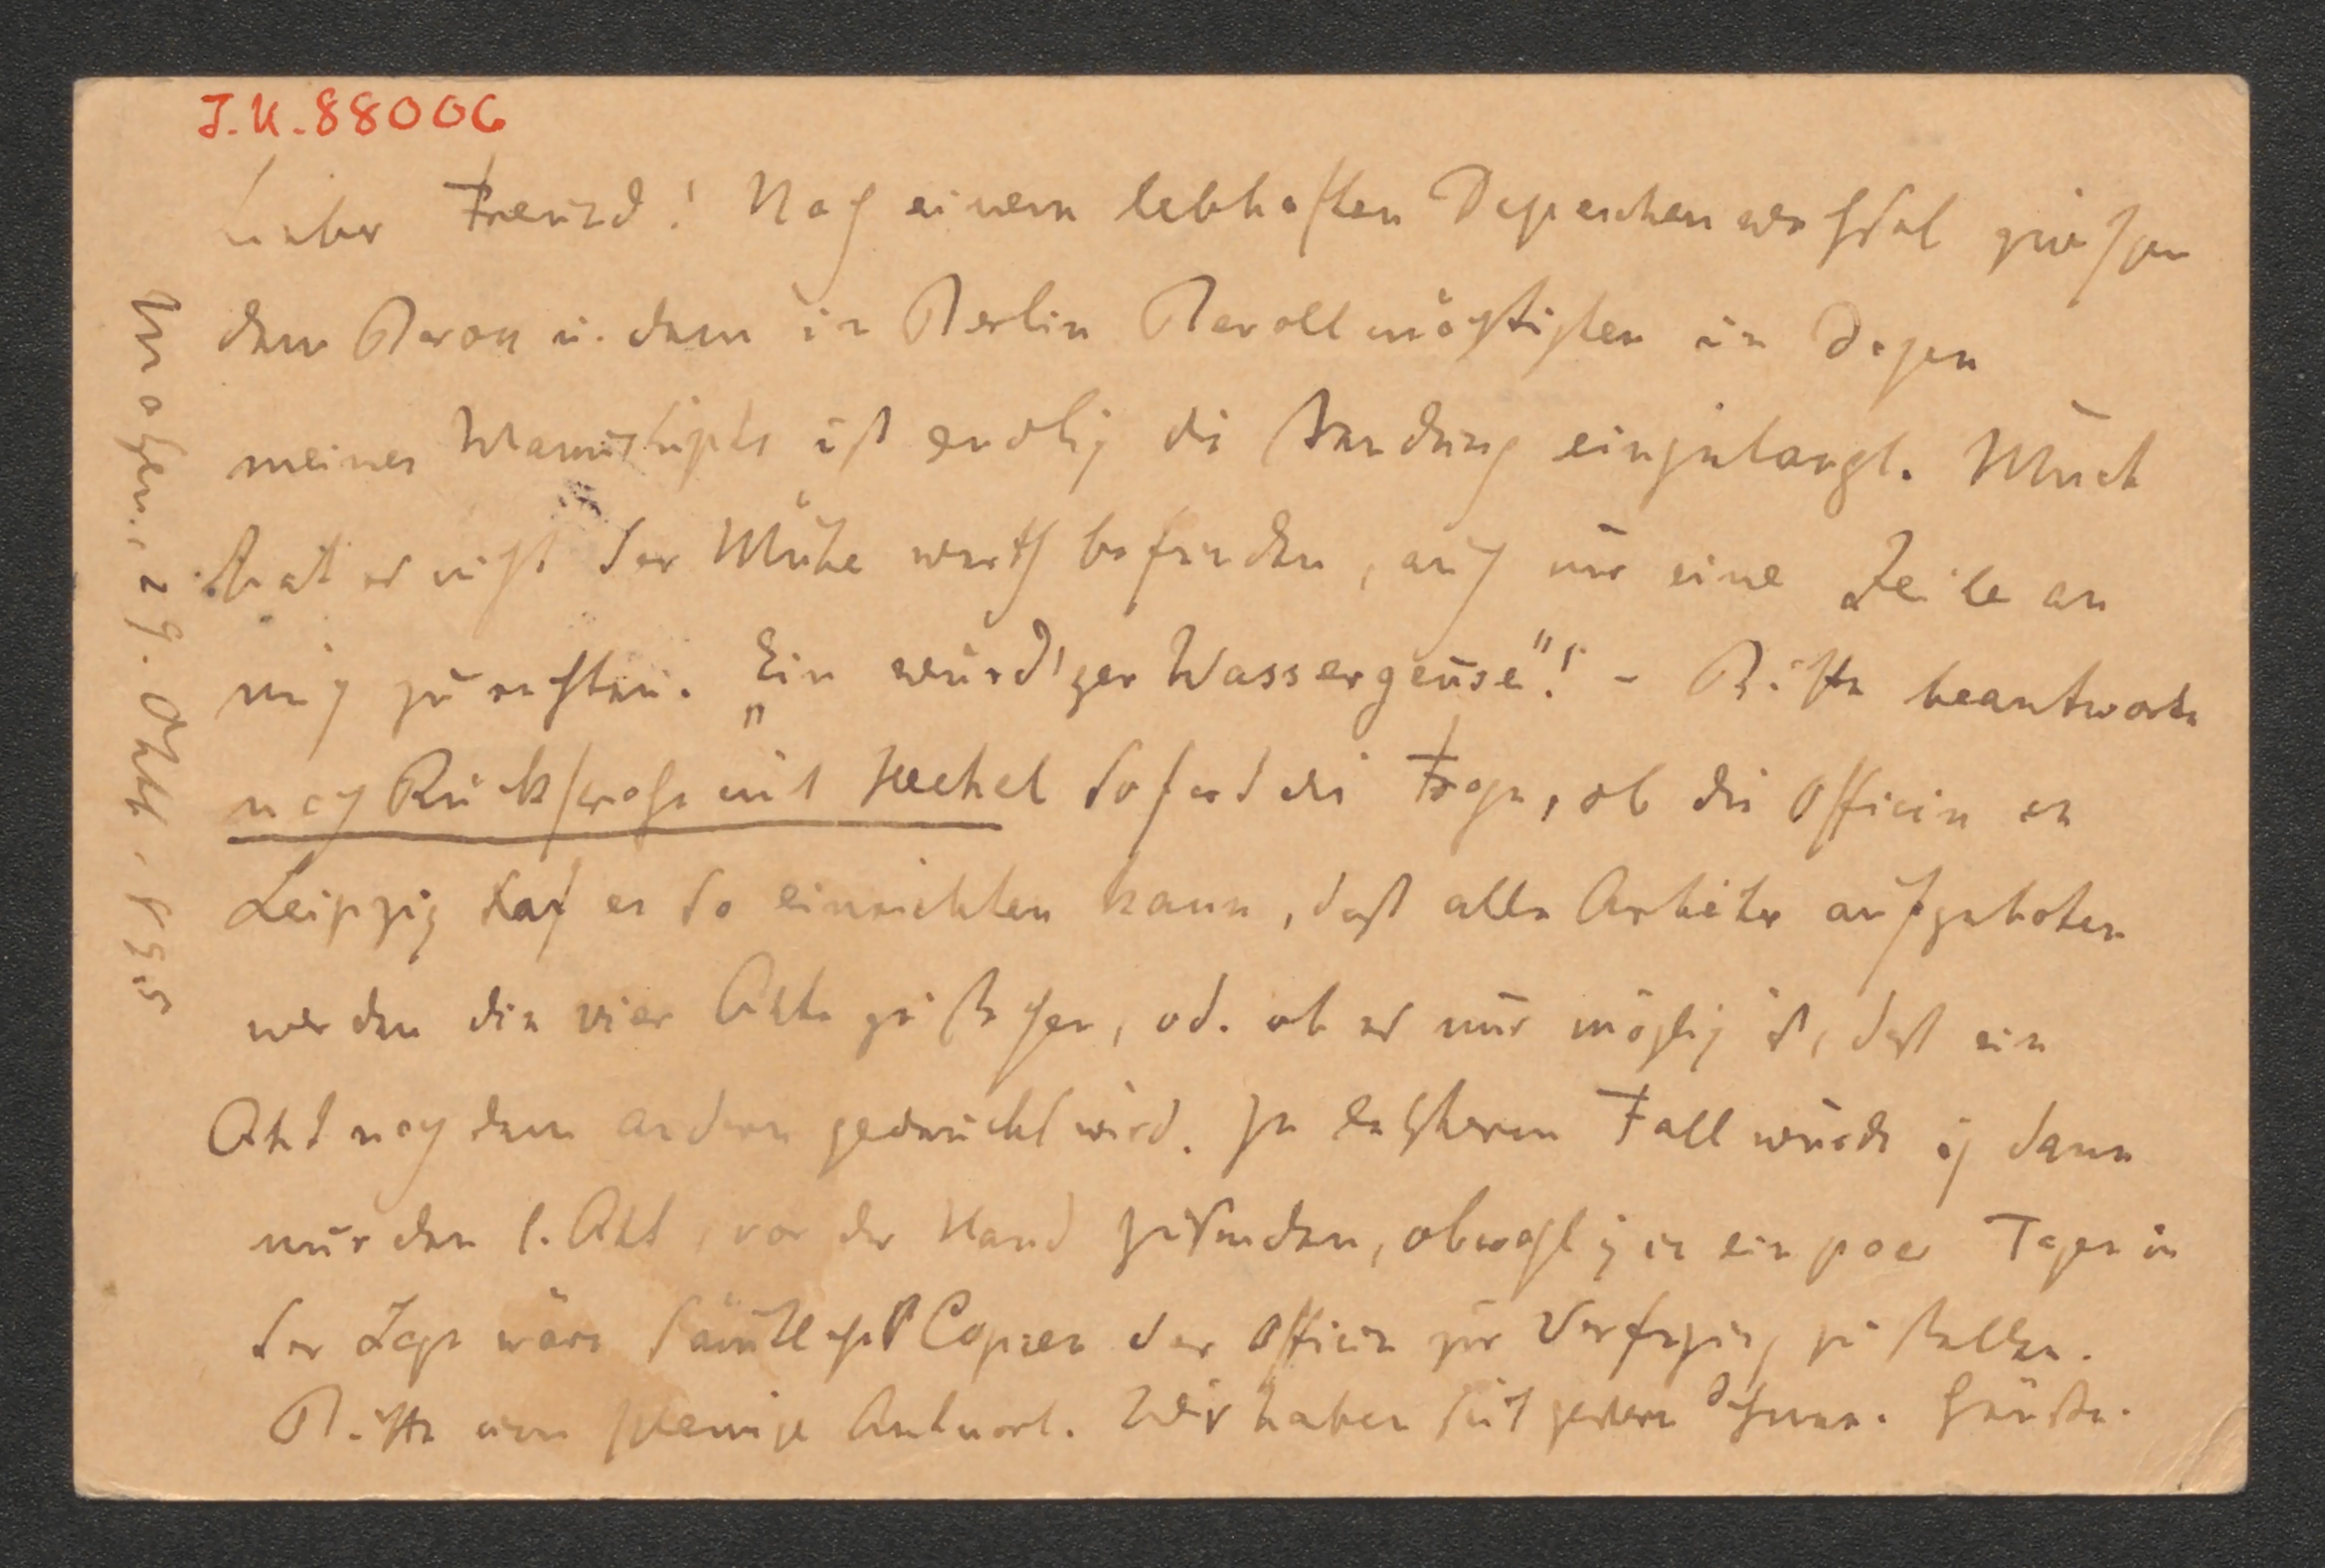 I.N.88006
Lieber Freund! Nach einem lebhaften Depeschenwechsel zwischen
dem Baron u. dem in Berlin Bevollmächtigten in Sachen
meines Manuskripts ist endlich die Sendung eingelangt. Muck
hat es nicht der Mühe werth befunden, auch nur eine Zeile an
mich zu richten. „Ein würd'ger Wassergeuse"! – Bitte beantworte
nach Rücksprache mit Heckel sofort die Frage, ob die Officin in
Leipzig es so einrichten kann, daß alle Arbeiter aufgeboten
werden die vier Akte zu stechen, od. ob es nur möglich ist, daß ein
Akt nach dem andern gedruckt wird. In letzterem Fall würde ich dann
nur den 1. Akt, vor der Hand zusenden, obwohl ich in ein paar Tagen in
der Lage wäre sämtliche Copien der Officin zur Verfügung zu stellen.
Bitte um schleunige Antwort. Wir haben seit gestern Schnee. Grüße.
Matzen, 29. Okt. 1895